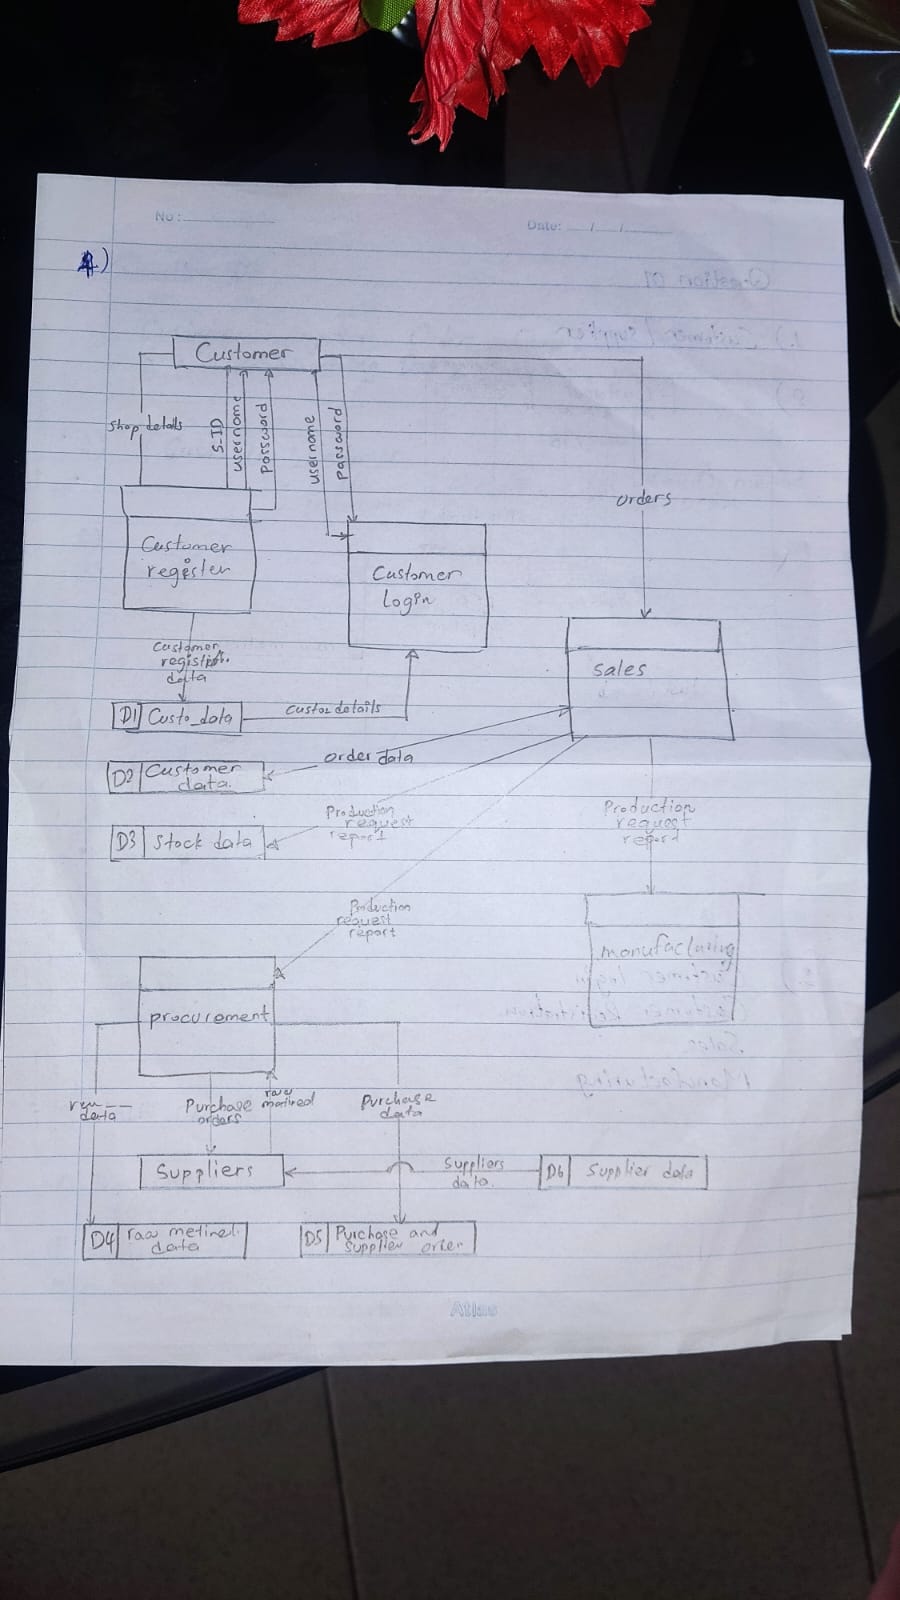 No:
Date: / /
4)
Customer
Shop details
S_ID
username
Password
username
password
orders
Customer
register
Customer
Login
Sales
Customer
data
D1 Custo_data
Custo details
order data
D2 Customer
data.
Production
request
report
Production
request
report
D3 Stock data
Production
request
report
manufacturing
procurement
data
Purchase
orders
raw
Purchase
data
Suppliers
Suppliers
data.
D6 Supplier data
D4 raw
data
D5 Purchase and
supplier
Atlas